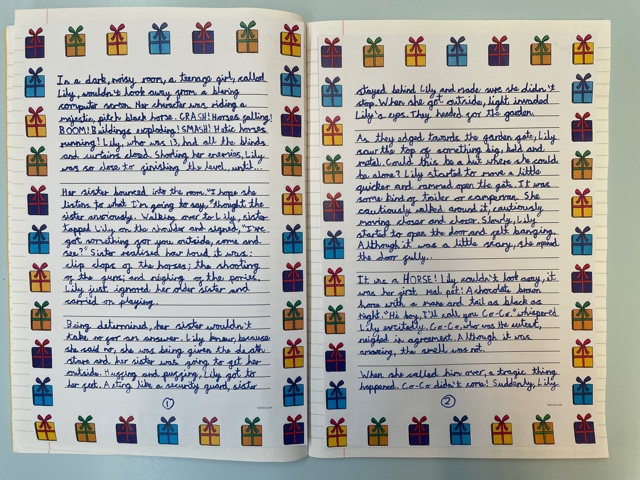 In a dark, noisy room, a teenage girl, called
Lily, wouldn't look away from a blaring
computer screen. Her character was riding a
majestic, pitch black horse. CRASH! Horses falling!
BOOM! Buildings exploding! SMASH! Hetic horses
running! Lily, who was 13, had all the blinds
and curtains closed. Shooting her enemies, Lily
was so close to finishing the level, until...
Her sister bounced into the room. "I hope she
listens to what I'm going to say," thought the
sister anxiously. Walking over to Lily, sister
tapped Lily on the shoulder and signed, "I've
got something for you outside, come and
see?" Sister realised how loud it was:
clip clops of the horses; the shooting
of the guns; and neighing of the ponies.
Lily just ignored her older sister and
carried on playing.
Being determined, her sister wouldn't
take no for an answer. Lily knew, because
she said no, she was being given the death
stare and her sister was going to get her
outside. Huffing and puffing, Lily got to
her feet. Acting like a security guard, sister
1
stayed behind Lily and made sure she didn't
stop. When she got outside, light invaded
Lily's eyes. They headed for the garden.
As they edged towards the garden gate, Lily
saw the top of something big, bold and
metal. Could this be a hut where she could
be alone? Lily started to move a little
quicker and rammed open the gate. It was
some kind of trailer or campervan. She
cautiously walked around it, cautiously
moving closer and closer. Slowly, Lily
started to open the door and felt banging.
Although it was a little scary, she opened
the door fully..
It was a HORSE! Lily couldn't look away, it
was her first real pet! A chocolate brown
horse with a mane and tail as black as
night. "Hi boy, I'll call you Co-Co." whispered
Lily excitedly. Co-Co, who was the cutest,
neighed in agreement. Although it was
amazing, the smell was not.
When she called him over, a tragic thing
happened. Co-Co didn't come! Suddenly, Lily
2